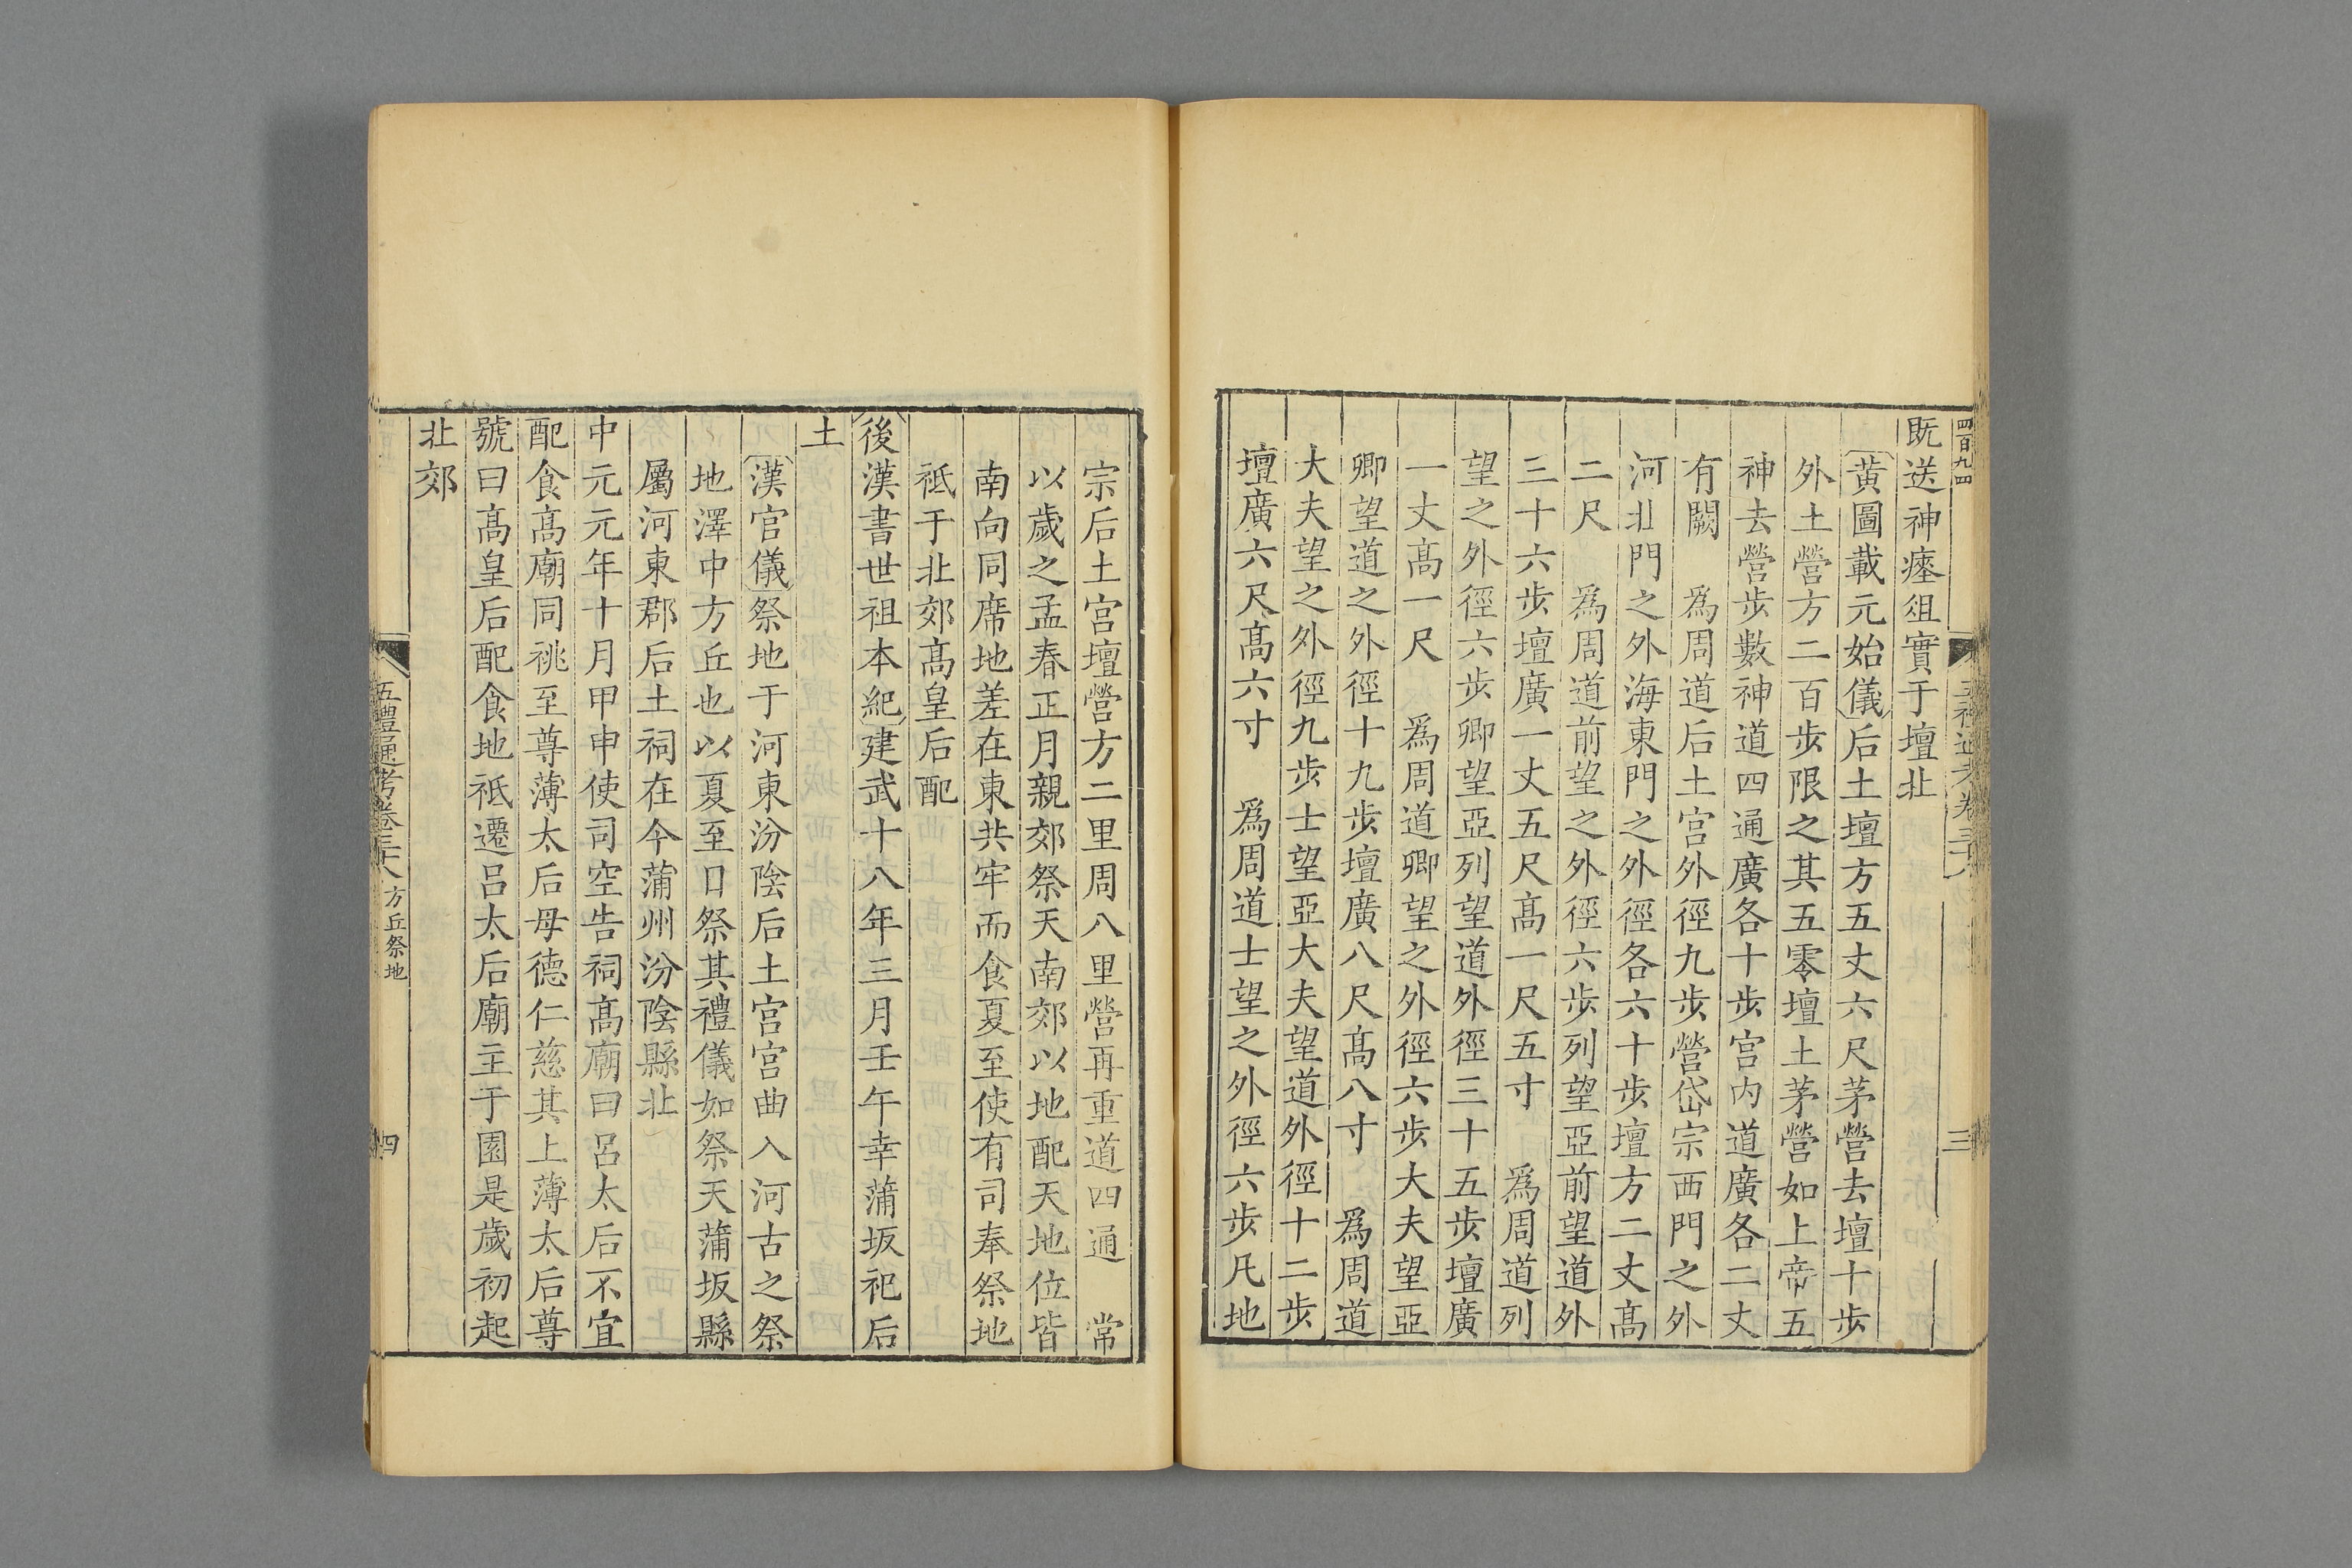 四百九四
既送神瘞俎實于壇北
黄圖載元始儀后土壇方五丈六尺茅營去壇十步
外土營方二百步限之其五零壇土茅營如上帝五
神去營步數神道四通廣各十步宫内道廣各二丈
有闕　爲周道后土宫外徑九步營岱宗西門之外
河北門之外海東門之外徑各六十步壇方二丈髙
二尺　爲周道前望之外徑六步列望亞前望道外
三十六步壇廣一丈五尺髙一尺五寸　爲周道列
望之外徑六步卿望亞列望道外徑三十五步壇廣
一丈髙一尺　爲周道卿望之外徑六步大夫望亞
卿望道之外徑十九步壇廣八尺髙八寸　爲周道
大夫望之外徑九步士望亞大夫望道外徑十二步
壇廣六尺髙六寸　爲周道士望之外徑六步凡地
三
宗后土宫壇營方二里周八里營再重道四通　常
以歲之孟春正月親郊祭天南郊以地配天地位皆
南向同席地差在東共牢而食夏至使有司奉祭地
祗于北郊髙皇后配
後漢書世祖本紀建武十八年三月壬午幸蒲坂祀后
土
漢官儀祭地于河東汾陰后土宫宫曲入河古之祭
地澤中方丘也以夏至日祭其禮儀如祭天蒲坂縣
屬河東郡后土祠在今蒲州汾陰縣北
中元元年十月甲申使司空告祠髙廟曰呂太后不宜
配食髙廟同祧至尊薄太后母德仁慈其上薄太后尊
號曰髙皇后配食地祗遷呂太后廟主于園是歲初起
北郊
五禮通考卷三十八 方丘祭地
四